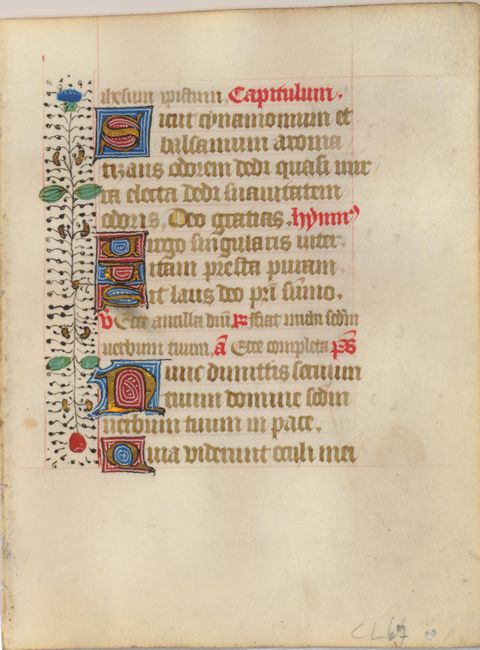 ihesum xpistum. Capitulum.
Sicut cynamomum et
balsamum aroma
tizans odorem dedi quasi mir
ra electa dedi suauitatem
odoris. Deo gratias. hymnus
Uirgo singularis inter.
Uitam presta puram.
Sit laus deo pri sumo.
V Ecce ancilla dni R fiat michi scdm
uerbum tuum A Ecce completa ps
Nunc dimittis seruum
tuum domine scdm
uerbum tuum in pace.
Quia viderunt oculi mei
CL67